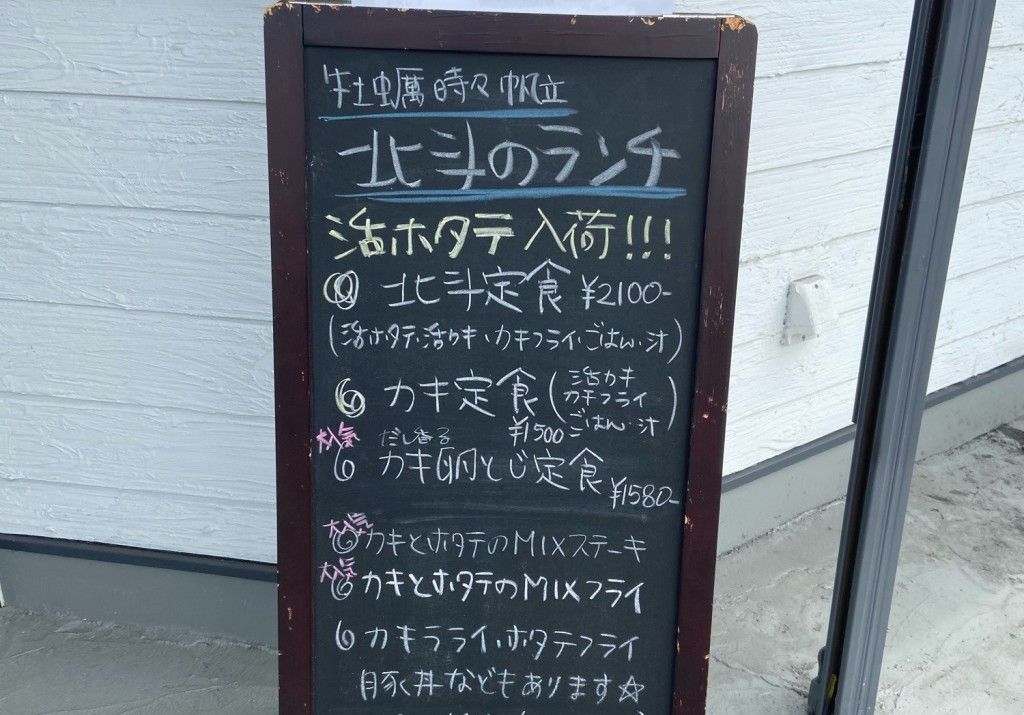 牡蠣時々帆立
北斗のランチ
活ホタテ入荷!!!
北斗定食 ¥2100-
(活ホタテ・活カキ・カキフライ・ごはん・汁)
カキ定食 (活カキ
カキフライ
ごはん・汁)
¥1500
大人気
だし香る
カキ卵とじ定食
¥1580-
大人気
カキとホタテのMIXステーキ
大人気
カキとホタテのMIXフライ
カキフライ・ホタテフライ
豚丼などもあります☆